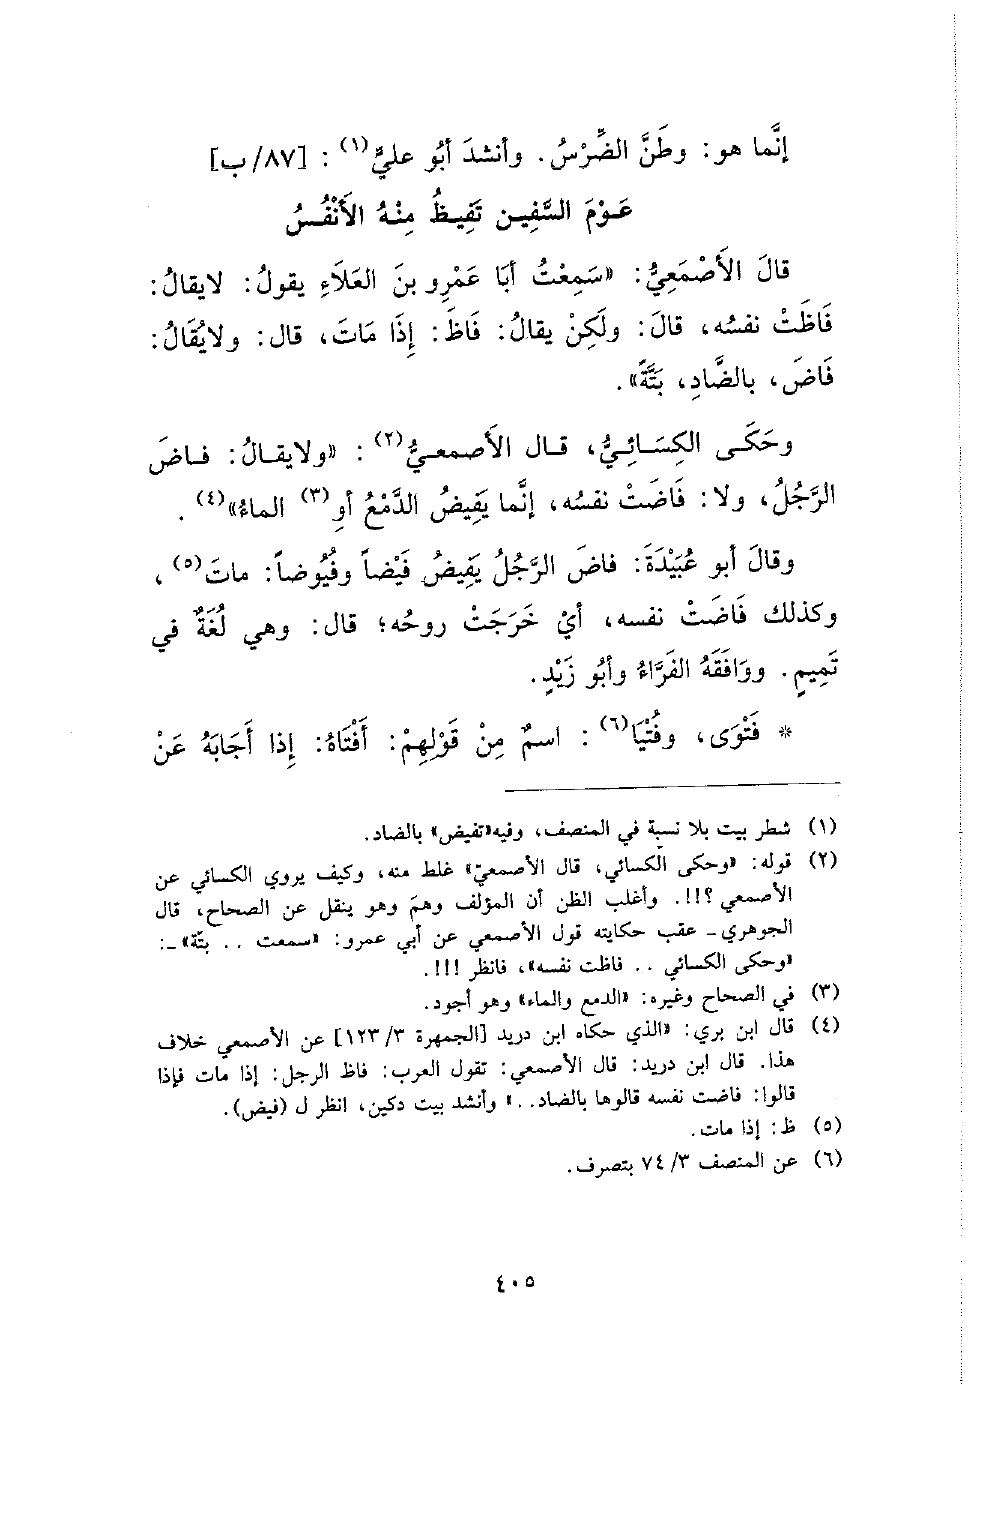 إنَّما هو: وطَنَّ الضِّرْسُ. وأنشدَ أبُو عليٍّ(١): [٨٧/ب]
عَـوْمَ السَّفِيـن تَفِيـظُ مِنْـهُ الأَنْفُـسُ
قالَ الأَصْمَعِيُّ: «سَمِعْتُ أبَا عَمْرِو بنَ العَلَاءِ يقولُ: لايقالُ:
فَاظَتْ نفسُه، قالَ: ولَكِنْ يقالُ: فَاظَ: إِذَا مَاتَ، قال: ولايُقَالُ:
فَاضَ، بالضَّادِ، بَتَّةً».
وحَكَـى الكِسَـائِـيُّ، قـال الأَصمعـيُّ(٢): «ولايقـالُ: فـاضَ
الرَّجُلُ، ولا: فَاضَتْ نفسُه، إنَّما يَفِيضُ الدَّمْعُ أوِ(٣) الماءُ»(٤).
وقالَ أبو عُبَيْدَةَ: فاضَ الرَّجُلُ يَفِيضُ فَيْضاً وفُيُوضاً: ماتَ(٥)،
وكذلك فَاضَتْ نفسه، أيْ خَرَجَتْ روحُه؛ قال: وهي لُغَةٌ في
تَمِيمٍ. ووَافَقَهُ الفَرَّاءُ وأبُو زَيْدٍ.
* فَتْوَى، وفُتْيَا(٦): اسمٌ مِنْ قَوْلِهِمْ: أَفْتَاهُ: إِذا أَجَابَهُ عَنْ
(١) شطر بيت بلا نسبة في المنصف، وفيه «تفيض» بالضاد.
(٢) قوله: «وحكى الكسائي، قال الأصمعيّ» غلط منه، وكيف يروي الكسائي عن
الأصمعي؟!!. وأغلب الظن أن المؤلف وهمَ وهو ينقل عن الصحاح، قال
الجوهري ـ عقب حكايته قول الأصمعي عن أبي عمرو: «سمعت .. بتّة» ـ:
«وحكى الكسائي .. فاظت نفسه»، فانظر!!!.
(٣) في الصحاح وغيره: «الدمع والماء» وهو أجود.
(٤) قال ابن بري: «الذي حكاه ابن دريد [الجمهرة ٣/ ١٢٣] عن الأصمعي خلاف
هذا. قال ابن دريد: قال الأصمعي: تقول العرب: فاظ الرجل: إذا مات فإذا
قالوا: فاضت نفسه قالوها بالضاد..» وأنشد بيت دكين، انظر ل (فيض).
(٥) ظ: إذا مات.
(٦) عن المنصف ٣/ ٧٤ بتصرف.
٤٠٥